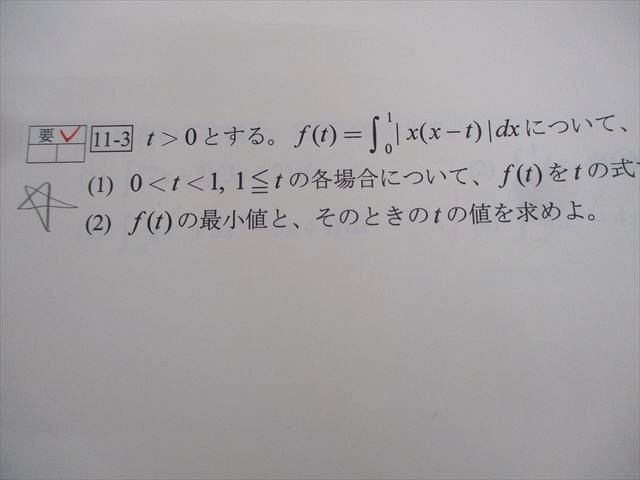 要 11-3 t > 0とする。 f(t) = ∫₀¹ | x(x − t) | dxについて、
(1) 0 < t < 1, 1 ≦ t の各場合について、 f(t) を t の式
(2) f(t) の最小値と、そのときの t の値を求めよ。